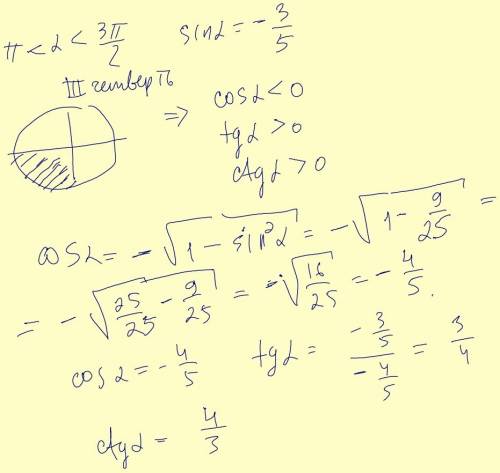 π < α < 3π/2   sinα = - 3/5
III четверть
=> cosα < 0
tgα > 0
ctgα > 0
cosα = - √(1 - sin²α) = - √(1 - 9/25) =
= - √(25/25 - 9/25) = - √(16/25) = - 4/5.
cosα = - 4/5   tgα = (- 3/5)/(- 4/5) = 3/4
ctgα = 4/3